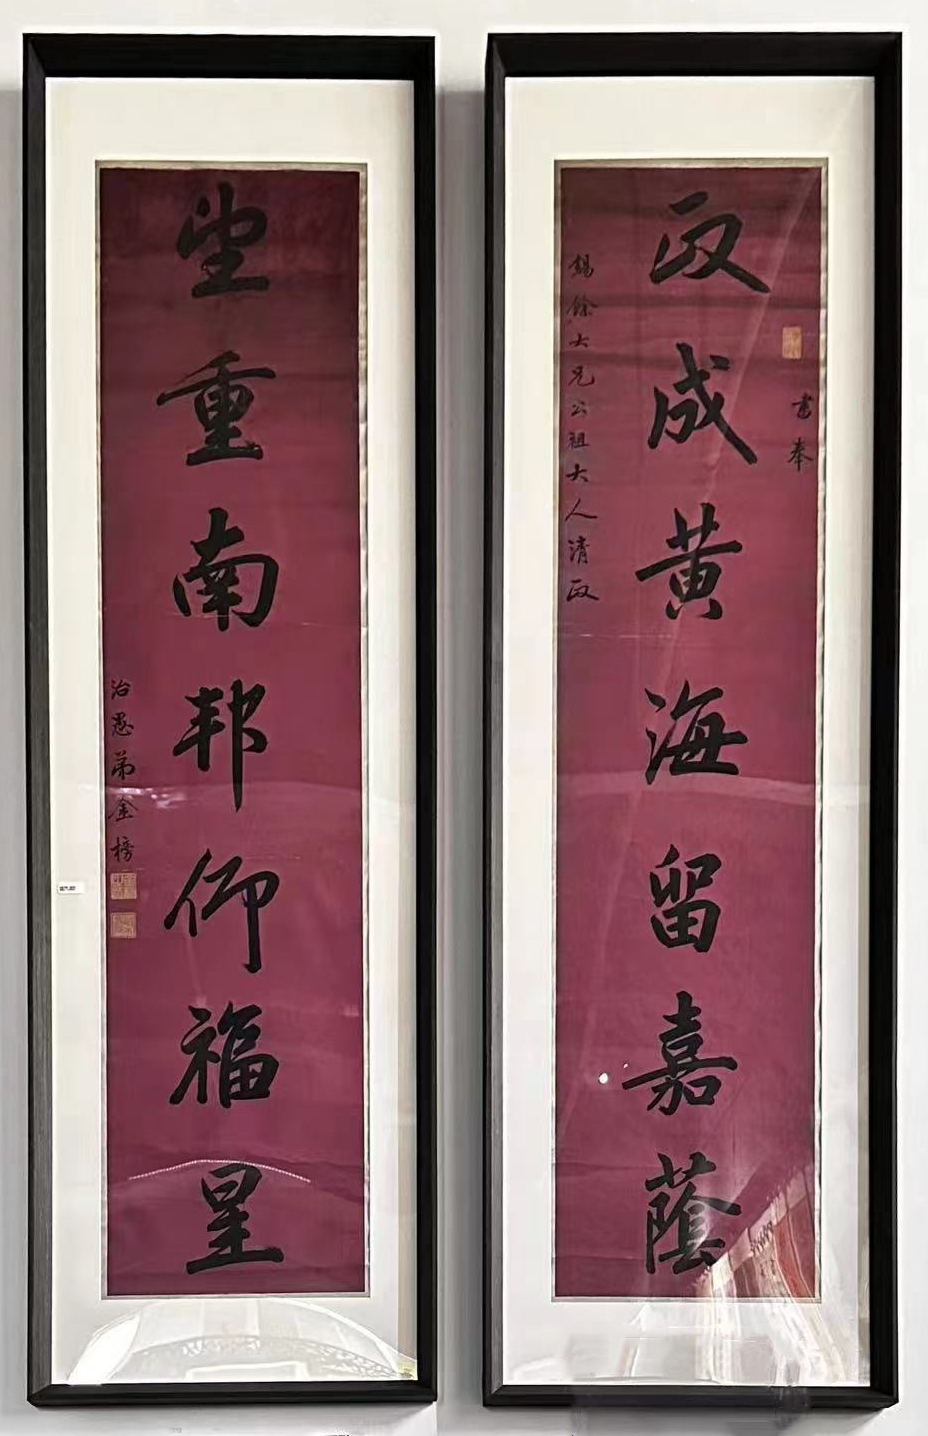 書奉
政成黃海留嘉蔭
錫餘大兄公祖大人清政
望重南邦仰福星
治愚弟金榜